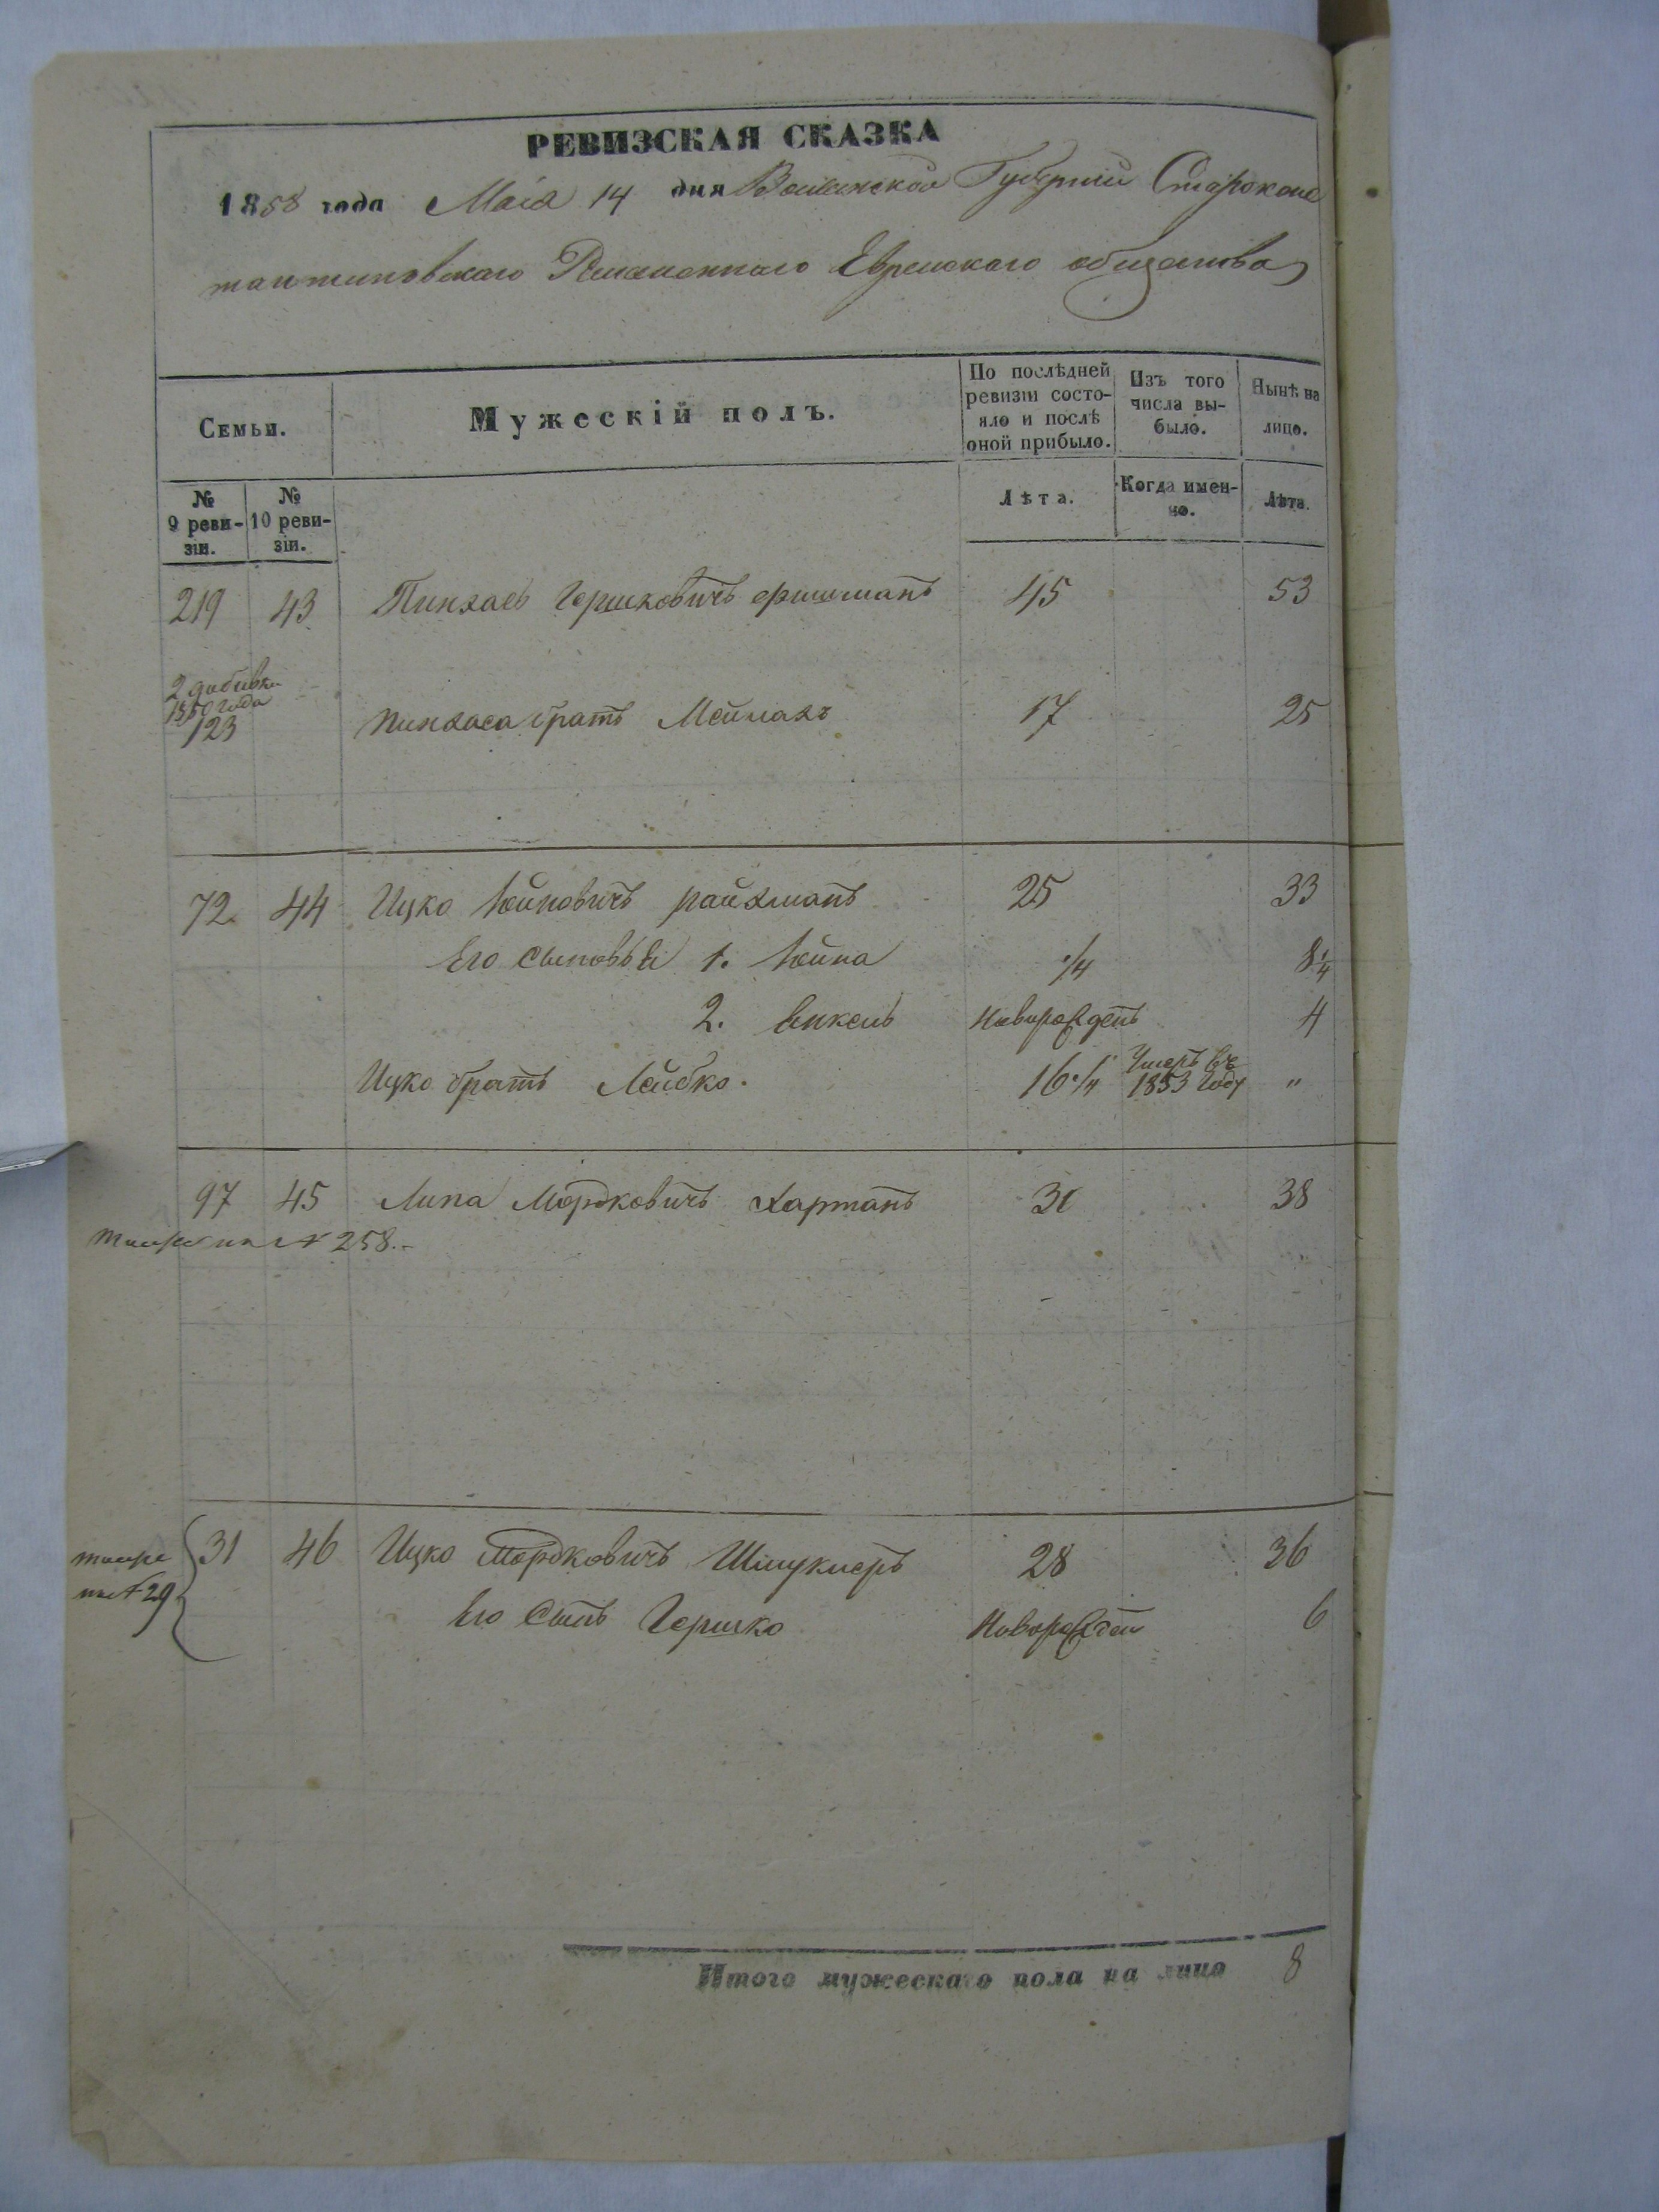 РЕВИЗСКАЯ СКАЗКА
1858 года Мая 14 дня Волынской Губернии Старокон
тантиновскаго Еврейскаго общества
Семьи.
Мужескій полъ.
По послѣдней ревизіи состояло и послѣ оной прибыло.
Изъ того числа выбыло.
Нынѣ на лицо.
№ 9 ревизіи.
№ 10 ревизіи.
Лѣта.
Когда именно.
Лѣта.
219 43 Пинхасъ Гершковичъ 45 53
2 добавки
1850 года
123 Пинхаса братъ 17 25
72. 44 Ицко Іойновичъ райхманъ 25 33
Его сыновья 1. Іойна 1/4 8 1/4
2. новорожденъ 4
Ицко братъ Лейбко. 16 1/4 Умеръ въ 1853 году "
97 45 Липа Мордковичъ Хартанъ 30 38
№ 258.-
31 46 Ицко Мордковичъ Шмуклеръ 28 36
№ 29
Его сынъ Гершко Новорожден 6
Итого мужескаго пола на лицо 8